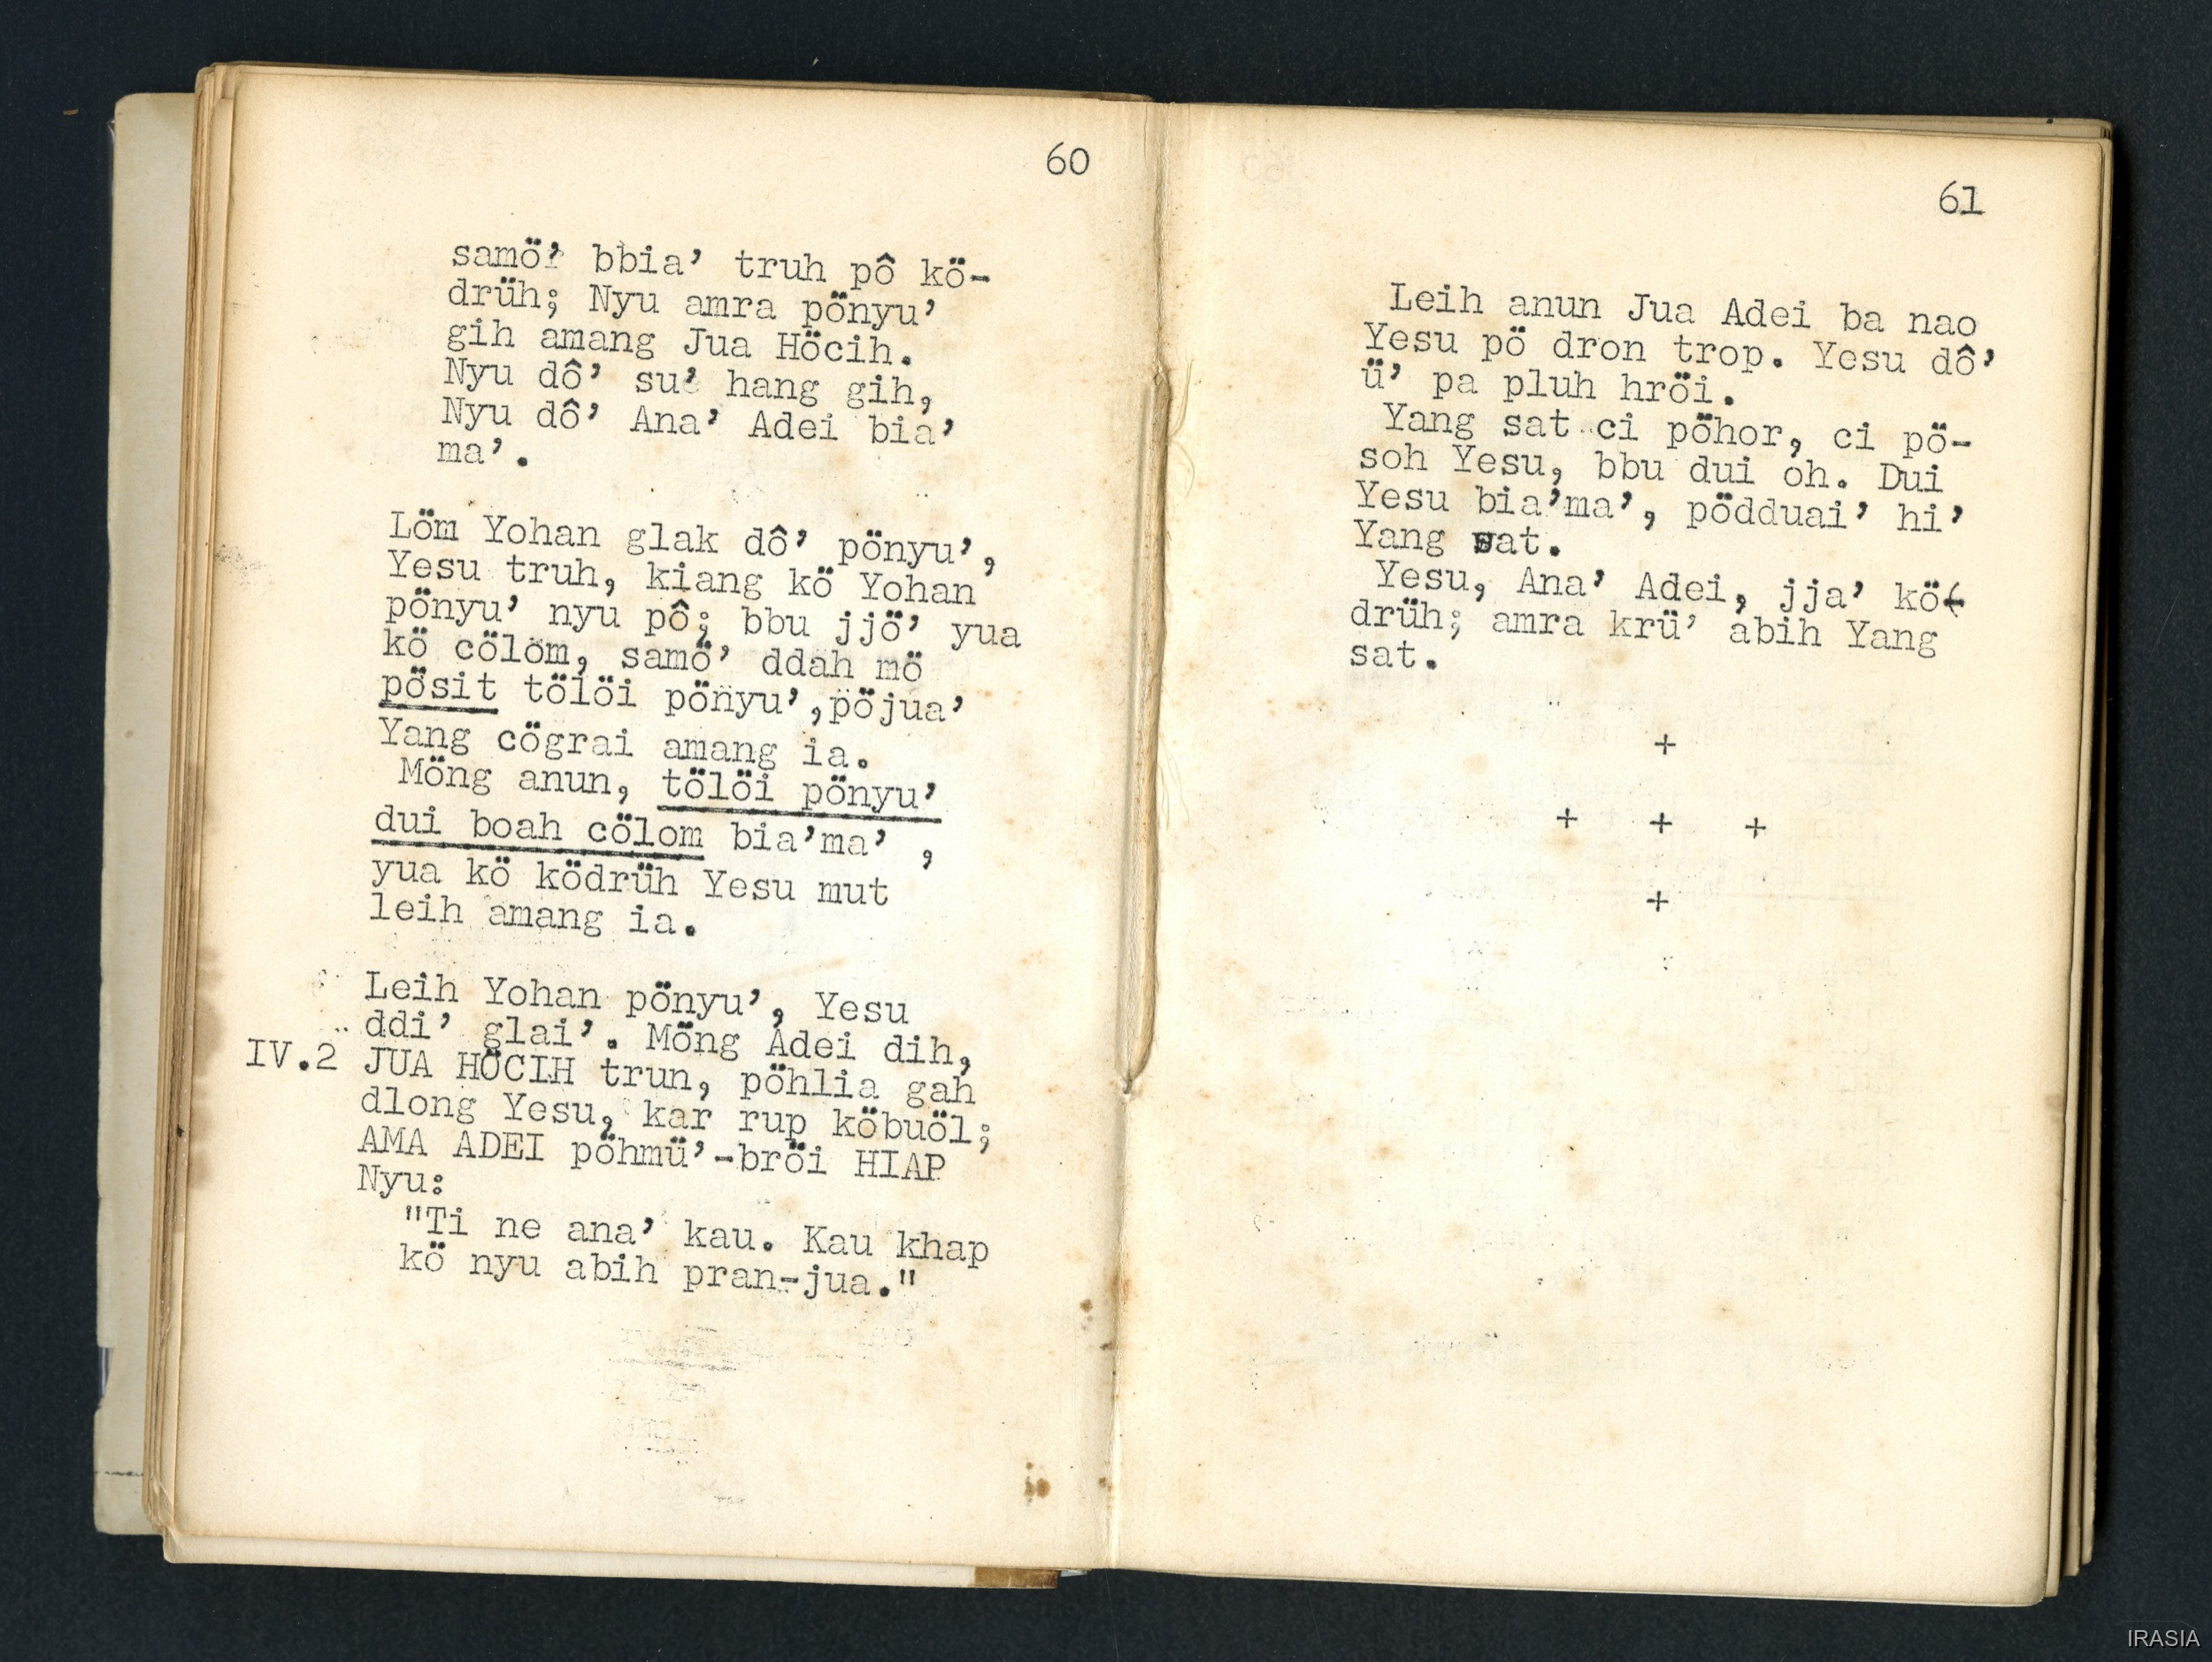 60
samö’ bbia’ truh pô kö-
drüh; Nyu amra pönyu’
gih amang Jua Höcih.
Nyu dô’ su’ hang gih,
Nyu dô’ Ana’ Adei bia’
ma’.
Löm Yohan glak dô’ pönyu’,
Yesu truh, kiang kö Yohan
pönyu’ nyu pô; bbu jjö’ yua
kö cölöm, samö’ ddah mö
pösit tölöi pönyu’,pöjua’
Yang cögrai amang ia.
Möng anun, tölöi pönyu’
dui boah cölom bia’ma’ ,
yua kö ködrüh Yesu mut
leih amang ia.
Leih Yohan pönyu’, Yesu
ddi’ glai’. Möng Adei dih,
IV.2 JUA HÖCIH trun, pöhlia gah
dlong Yesu, kar rup köbuöl;
AMA ADEI pöhmü’-bröi HIAP
Nyu:
"Ti ne ana’ kau. Kau khap
kö nyu abih pran-jua."
61
Leih anun Jua Adei ba nao
Yesu pö dron trop. Yesu dô’
ü’ pa pluh hröi.
Yang sat ci pöhor, ci pö-
soh Yesu, bbu dui oh. Dui
Yesu bia’ma’, pödduai’ hi’
Yang sat.
Yesu, Ana’ Adei, jja’ kö-
drüh; amra krü’ abih Yang
sat.
+
+ + +
+
IRASIA